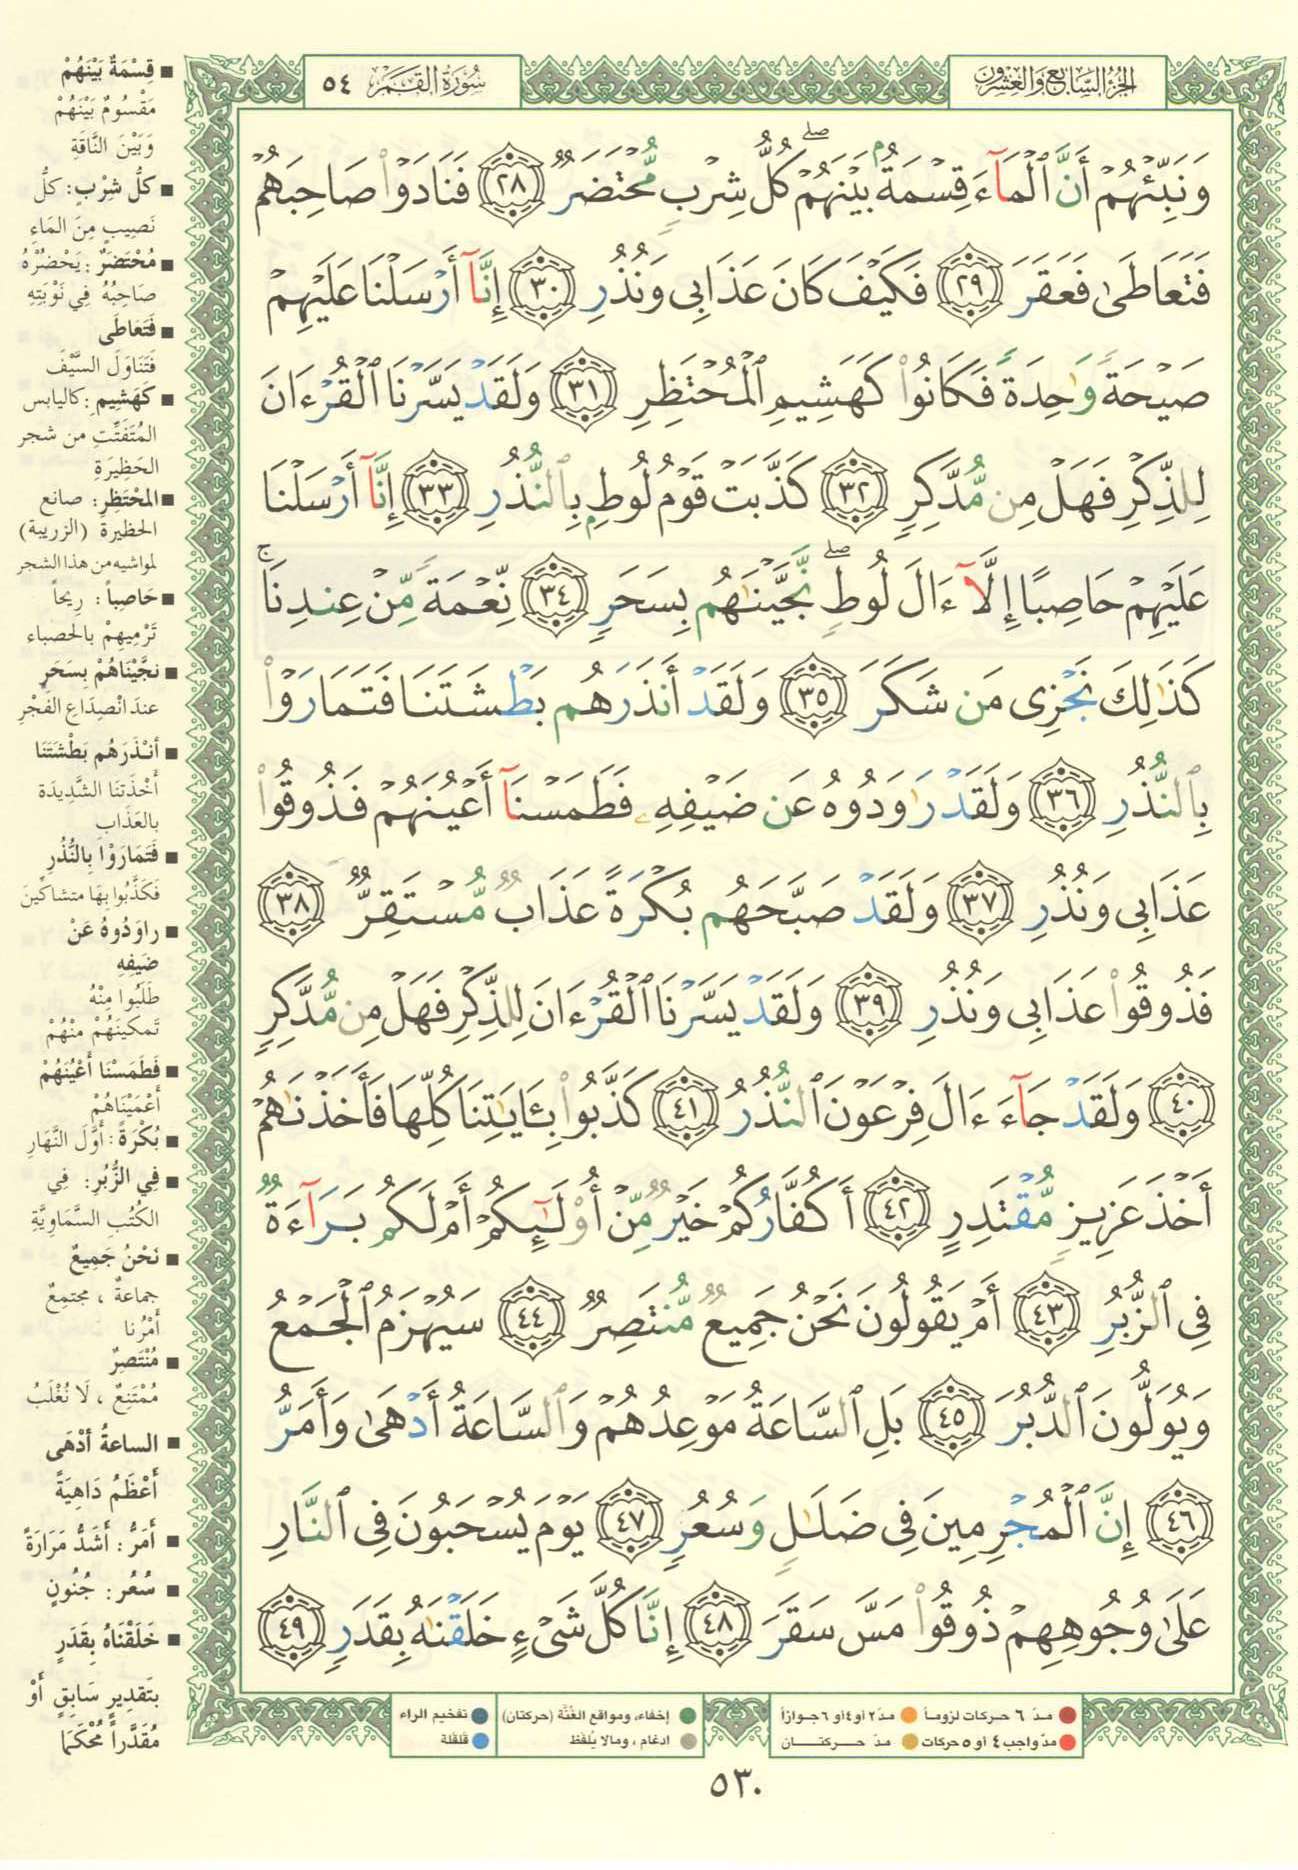 الجزء السابع والعشرون
سورة القمر ٥٤
وَنَبِّئْهُمْ أَنَّ ٱلْمَآءَ قِسْمَةٌۢ بَيْنَهُمْ ۖ كُلُّ شِرْبٍ مُّحْتَضَرٌ ٢٨ فَنَادَوْا۟ صَاحِبَهُمْ
فَتَعَاطَىٰ فَعَقَرَ ٢٩ فَكَيْفَ كَانَ عَذَابِى وَنُذُرِ ٣٠ إِنَّآ أَرْسَلْنَا عَلَيْهِمْ
صَيْحَةً وَٰحِدَةً فَكَانُوا۟ كَهَشِيمِ ٱلْمُحْتَظِرِ ٣١ وَلَقَدْ يَسَّرْنَا ٱلْقُرْءَانَ
لِلذِّكْرِ فَهَلْ مِن مُّدَّكِرٍ ٣٢ كَذَّبَتْ قَوْمُ لُوطٍۭ بِٱلنُّذُرِ ٣٣ إِنَّآ أَرْسَلْنَا
عَلَيْهِمْ حَاصِبًا إِلَّآ ءَالَ لُوطٍ ۖ نَّجَّيْنَٰهُم بِسَحَرٍ ٣٤ نِّعْمَةً مِّنْ عِندِنَا ۚ
كَذَٰلِكَ نَجْزِى مَن شَكَرَ ٣٥ وَلَقَدْ أَنذَرَهُم بَطْشَتَنَا فَتَمَارَوْا۟
بِٱلنُّذُرِ ٣٦ وَلَقَدْ رَٰوَدُوهُ عَن ضَيْفِهِۦ فَطَمَسْنَآ أَعْيُنَهُمْ فَذُوقُوا۟
عَذَابِى وَنُذُرِ ٣٧ وَلَقَدْ صَبَّحَهُم بُكْرَةً عَذَابٌ مُّسْتَقِرٌّ ٣٨
فَذُوقُوا۟ عَذَابِى وَنُذُرِ ٣٩ وَلَقَدْ يَسَّرْنَا ٱلْقُرْءَانَ لِلذِّكْرِ فَهَلْ مِن مُّدَّكِرٍ
٤٠ وَلَقَدْ جَآءَ ءَالَ فِرْعَوْنَ ٱلنُّذُرُ ٤١ كَذَّبُوا۟ بِـَٔايَٰتِنَا كُلِّهَا فَأَخَذْنَٰهُمْ
أَخْذَ عَزِيزٍ مُّقْتَدِرٍ ٤٢ أَكُفَّارُكُمْ خَيْرٌ مِّنْ أُو۟لَٰٓئِكُمْ أَمْ لَكُم بَرَآءَةٌ
فِى ٱلزُّبُرِ ٤٣ أَمْ يَقُولُونَ نَحْنُ جَمِيعٌ مُّنتَصِرٌ ٤٤ سَيُهْزَمُ ٱلْجَمْعُ
وَيُوَلُّونَ ٱلدُّبُرَ ٤٥ بَلِ ٱلسَّاعَةُ مَوْعِدُهُمْ وَٱلسَّاعَةُ أَدْهَىٰ وَأَمَرُّ
٤٦ إِنَّ ٱلْمُجْرِمِينَ فِى ضَلَٰلٍ وَسُعُرٍ ٤٧ يَوْمَ يُسْحَبُونَ فِى ٱلنَّارِ
عَلَىٰ وُجُوهِهِمْ ذُوقُوا۟ مَسَّ سَقَرَ ٤٨ إِنَّا كُلَّ شَىْءٍ خَلَقْنَٰهُ بِقَدَرٍ ٤٩
■ قِسْمَةٌ بَيْنَهُمْ
مَقْسُومٌ بَيْنَهُمْ
وَبَيْنَ النَّاقَةِ
■ كلُّ شِرْبٍ: كلُّ
نَصِيبٍ مِنَ المَاءِ
■ مُحْتَضَرٌ: يَحْضُرُهُ
صَاحِبُهُ فِي نَوْبَتِهِ
■ فَتَعَاطَى
فَتَنَاوَلَ السَّيْفَ
■ كَهَشِيمِ: كاليابس
المُتَفَتِّتِ من شجر
الحَظِيرَةِ
■ المُحْتَظِرِ: صانع
الحظيرة (الزريبة)
لمواشيه من هذا الشجر
■ حَاصِباً: رِيحاً
تَرْمِيهِمْ بالحصباء
■ نجَّيْنَاهُمْ بِسَحَرٍ
عندَ انْصِدَاعِ الفَجْرِ
■ أنْذَرَهُم بَطْشَتَنَا
أَخْذَتنَا الشَّدِيدَة
بالعَذَابِ
■ فَتَمَارَوْا بِالنُّذُرِ
فَكَذَّبُوا بهَا متشاكِّينَ
■ راوَدُوهُ عَنْ
ضَيفِهِ
طَلَبُوا مِنْهُ
تَمكينَهُمْ منْهُمْ
■ فَطَمَسْنَا أَعْيُنَهُمْ
أَعْمَيْنَاهُمْ
■ بُكْرَةً: أوَّلَ النَّهَارِ
■ فِي الزُّبُرِ: فِي
الكُتُبِ السَّمَاوِيَّةِ
■ نَحْنُ جَمِيعٌ
جماعةٌ، مجتمِعٌ
أمْرُنا
■ مُنْتَصِرٌ
مُمْتَنِعٌ، لَا نُغْلَبُ
■ الساعةُ أدْهَى
أَعْظَمُ دَاهِيَةً
■ أَمَرُّ: أَشَدُّ مَرَارَةً
■ سُعُرٍ: جُنُونٍ
■ خَلَقْنَاهُ بِقَدَرٍ
بتَقدِيرٍ سَابِقٍ أَوْ
مُقَدَّراً مُحْكَمَا
مدّ ٦ حركات لزوماً مدّ ٢ أو ٤ أو ٦ جوازاً
مدّ واجب ٤ أو ٥ حركات مدّ حركتان
إخفاء، ومواقع الغُنَّة (حركتان) تفخيم الراء
ادغام، ومالا يُلفَظ قلقلة
٥٣٠